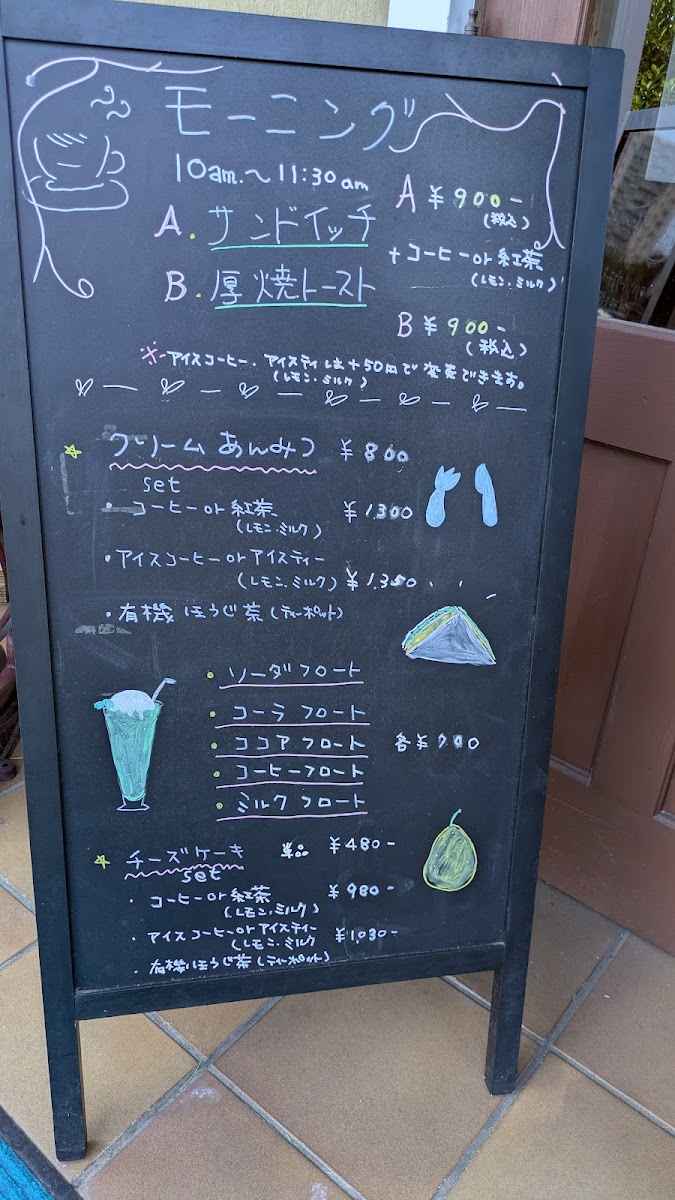 モーニング
10am.～11:30am
A. サンドイッチ
B. 厚焼トースト
A ￥900-
(税込)
+コーヒーor紅茶
(レモン・ミルク)
B ￥900-
(税込)
※アイスコーヒー・アイスティは+50円で変更できます。
(レモン・ミルク)
クリームあんみつ ￥800
set
・コーヒーor紅茶 ￥1300
(レモン・ミルク)
・アイスコーヒーorアイスティー
(レモン・ミルク) ￥1,350
・有機ほうじ茶(ティーポット)
・ソーダフロート
・コーラフロート
・ココアフロート 各￥700
・コーヒーフロート
・ミルクフロート
チーズケーキ 単品 ￥480-
set
・コーヒーor紅茶 ￥980-
(レモン・ミルク)
・アイスコーヒーorアイスティー ￥1,030-
(レモン・ミルク
・有機ほうじ茶(ティーポット)